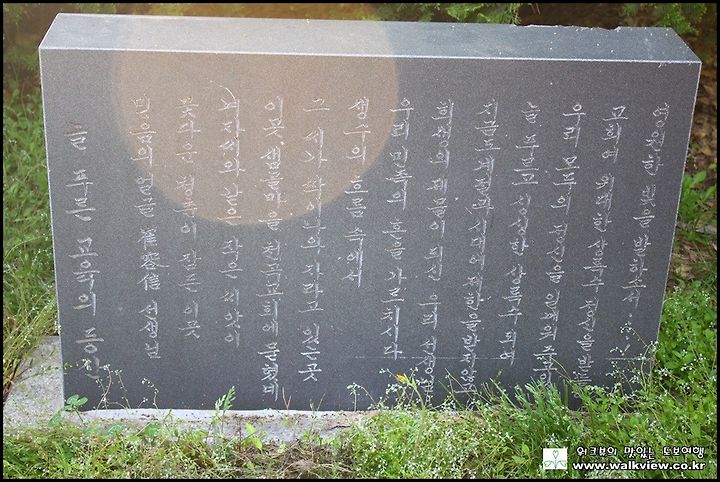 늘 푸른
믿음의 얼굴 崔容信 선생님
꽃다운 청춘이 잠든 이곳
겨자씨와 같은 작은 씨앗이
이곳, 샘골마을 천곡교회에 묻혔네
그 씨가 싹이 나와 자라고 있는 곳
생수의 흐름 속에서
우리 민족의 혼을 가르치시다
희생의 제물이 되신 우리 선생님
지금도 계절과 시대에 제한을 받지 않
늘 푸르고 싱싱한 상록수 되어
우리 모두의 정신을 일깨워 주
위대한 상록수 정신을 받
영원한 빛을 발하소서...
워크뷰의 맛있는 도보여행
www.walkview.co.kr